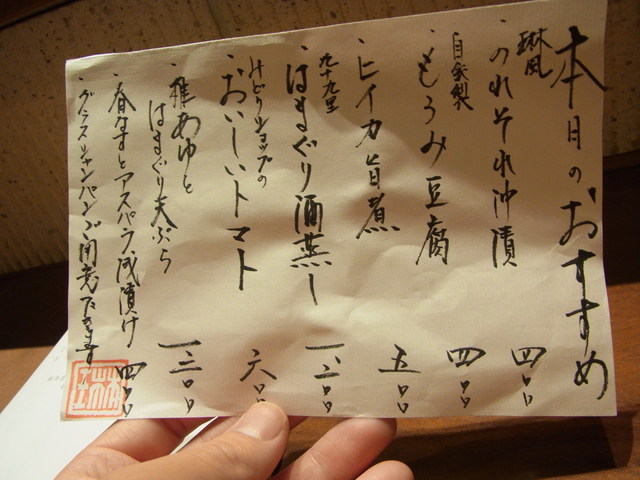 本日のおすすめ
琳風
・のれそれ沖漬 四〇〇
自家製
・もろみ豆腐 四〇〇
・ヒイカ旨煮 五〇〇
九十九里
・はまぐり酒蒸し 一、二〇〇
けどりショップの
・おいしいトマト 六〇〇
・稚あゆと
はまぐり天ぷら 一、三〇〇
・春なすとアスパラ浅漬け 四〇〇
・グラスシャンパンご用意できます